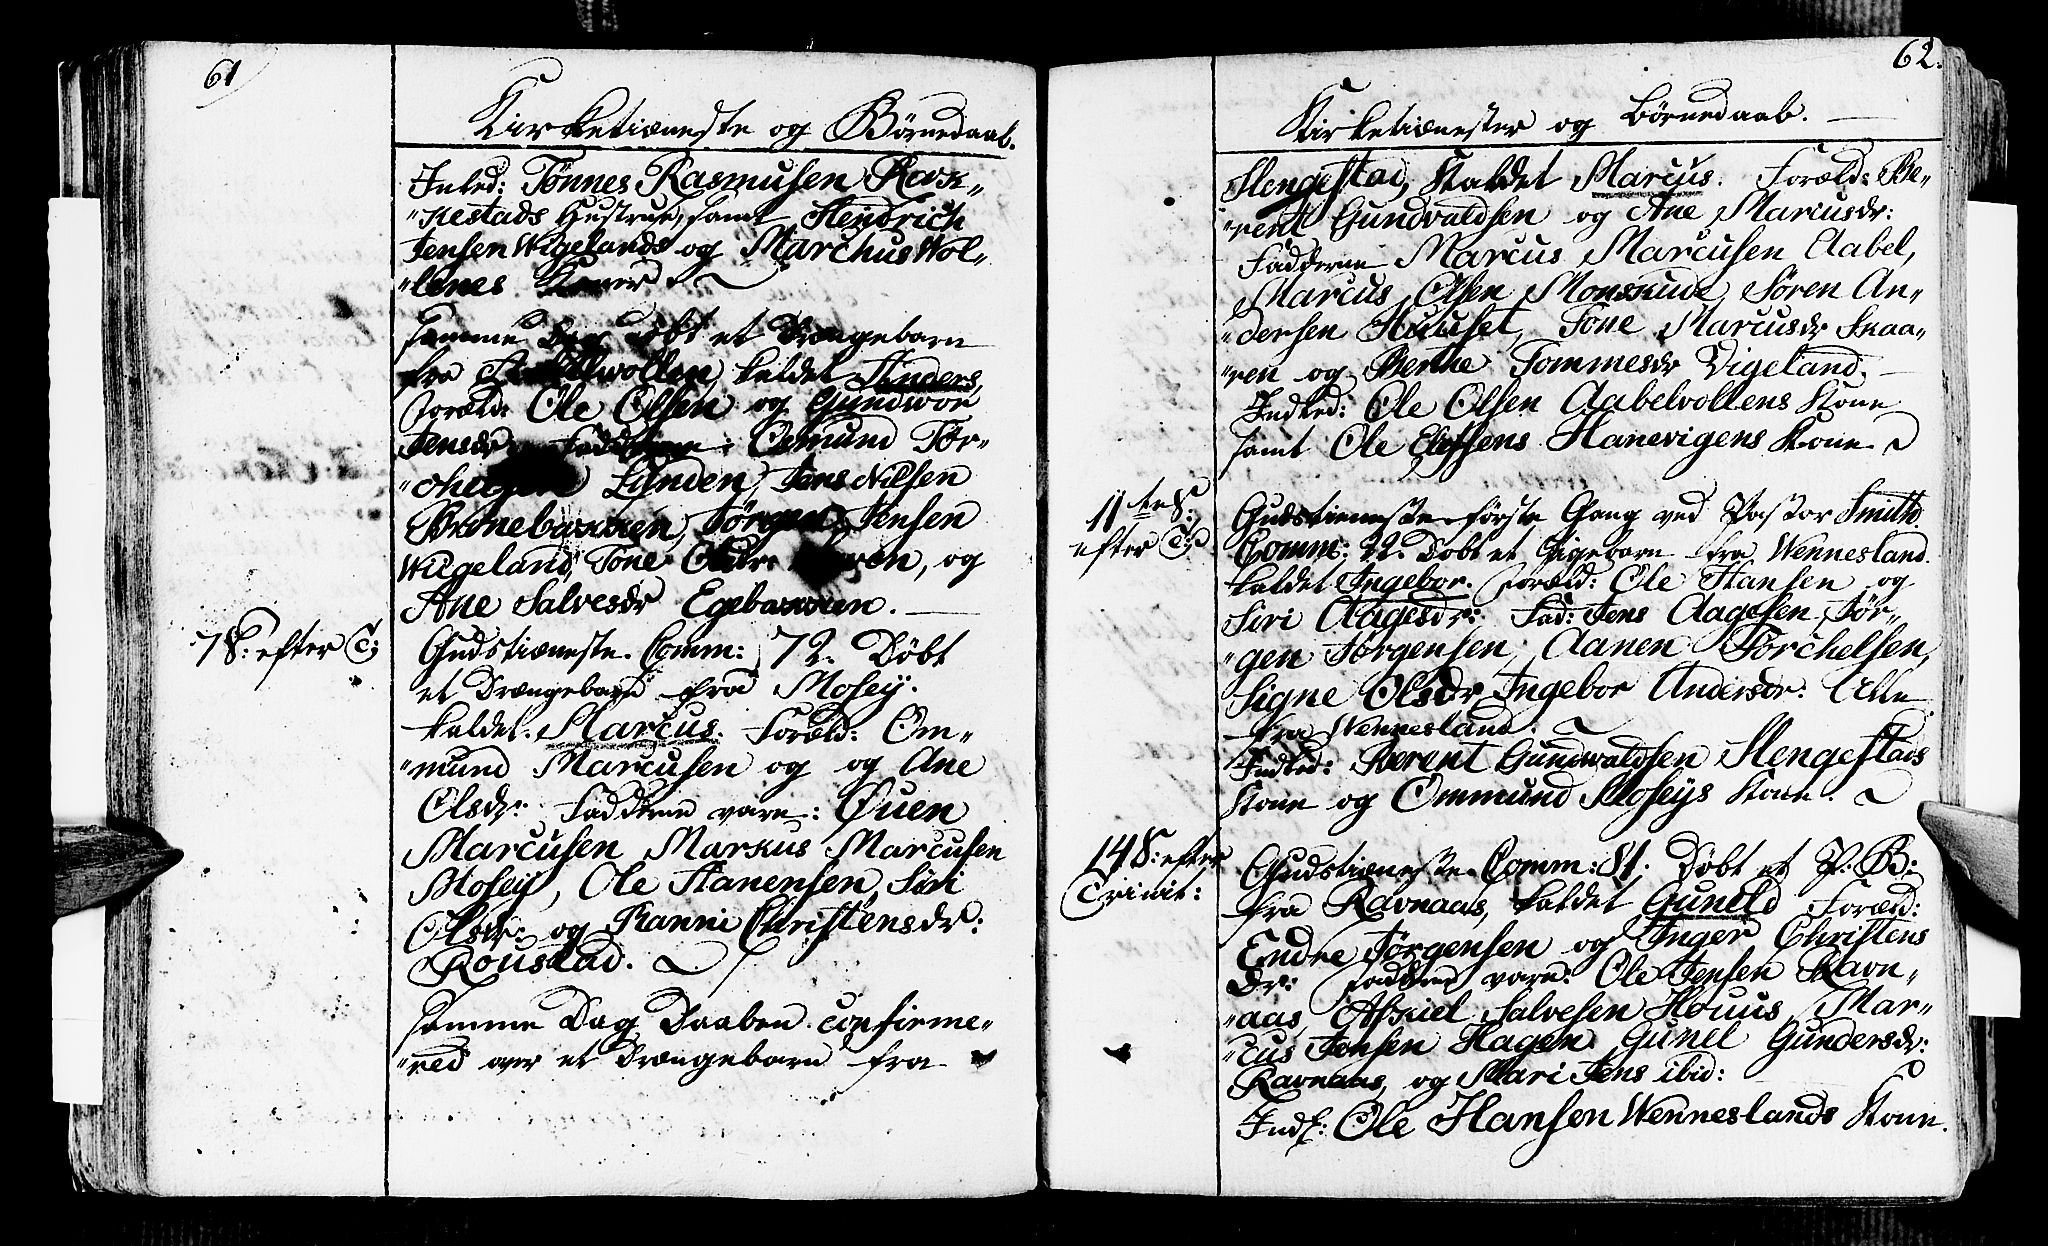 61
Kirketieneste og Börnedaab.
Inled: Tönnes Rasmusen Rok-
"kestads Hustrue, samt Hendrich
Jensen Wigelands og Marchus Wol-
"lenes Koner.
Samme Dag döbt et Drængebarn
fra kaldet Anders,
Foræld: Ole Olsen og Gundwor
Jensdr. Fadderne: Osmund Tör-
Lunden, Jens Nilsen
Bronebakken, Jörgen Jensen
Wiigeland, Tone Olsdr. og
Ane Salvesdr Egebakken.
7 S: efter T:
Gudstieneste. Comm: 72. Döbt
et Drængebarn fra Mosey.
kaldet. Marcus. Foræld: Om-
"mund Marcusen og og Ane
Olsdr: Fadderne vare: Øuen
Marcusen Markus Marcusen
Mosey, Ole Hanensen, Siri
Olsdr: og Ranni Christensdr:
Roustad.
Samme Dag Daaben confirme-
"red over et Drængebarn fra
62.
Kirketienester og Börnedaab.
Slengestad, kaldet Marcus. Foræld: Be-
"rent Gundvaldsen og Ane Marcusdr:
Fadderne Marcus Marcusen Aabel,
Marcus Olsen Monskude, Sören An-
"dersen Huuset, Tone Marcusdr Snaa-
"ren og Berthe Tommesdr Vigeland.
Indled: Ole Olsen Aabelvollens Kone
samt Ole Hanevigens Kone
11te S:
efter T:
Gudstieneste förste Gang ved Pastor Smith.
Comm: 22. Döbt et Pigebarn fra Wennesland.
kaldet Ingebor. Foræld: Ole Hansen og
Siri Aagesdr: Fad: Jens Aagesen, Jör-
"gen Jörgensen, Aanen Torchelsen,
Signe Olsdr Ingebor Andersdr: Alle
fra Wennesland.
Indled: Berent Gundwaldsen Slengestads
Kone og Ommund Moseys Kone.
14 S: efter
Trinit:
Gudstieneste. Comm: 81. Döbt et P: B:
fra Ravnaas, kaldet Guneld Foræld:
Endre Jörgensen og Inger Christens
Dr: Fadderne vare: Ole Jensen Ravn-
"aas, Askiel Salvesen Houus, Mar-
"cus Jensen Hagen. Gunel Gundersdr:
Ravnaas, og Mari Jens ibid:
Indl: Ole Hansen Wenneslands Kone.